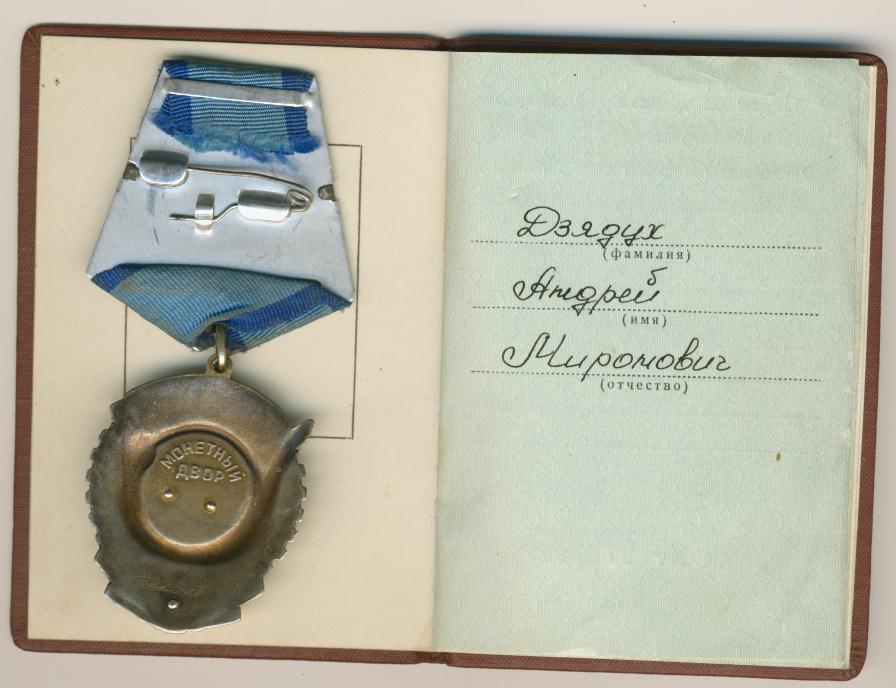 МОНЕТНЫЙ
ДВОР
Дзядух
(фамилия)
Андрей
(имя)
Миронович
(отчество)